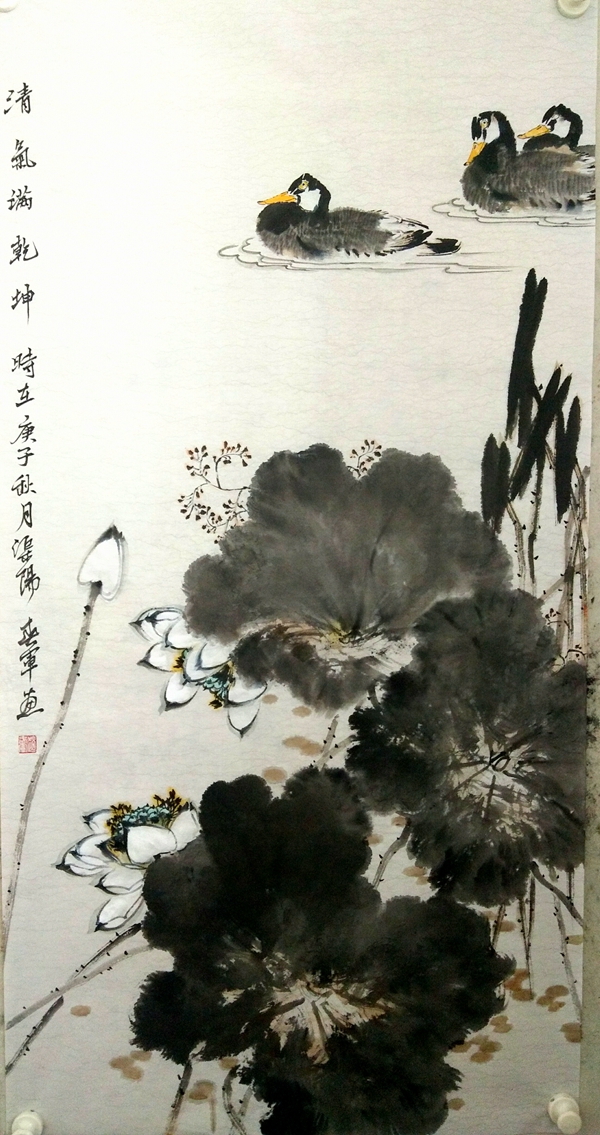 清氣滿乾坤 時在庚子秋月渠陽 春軍畫